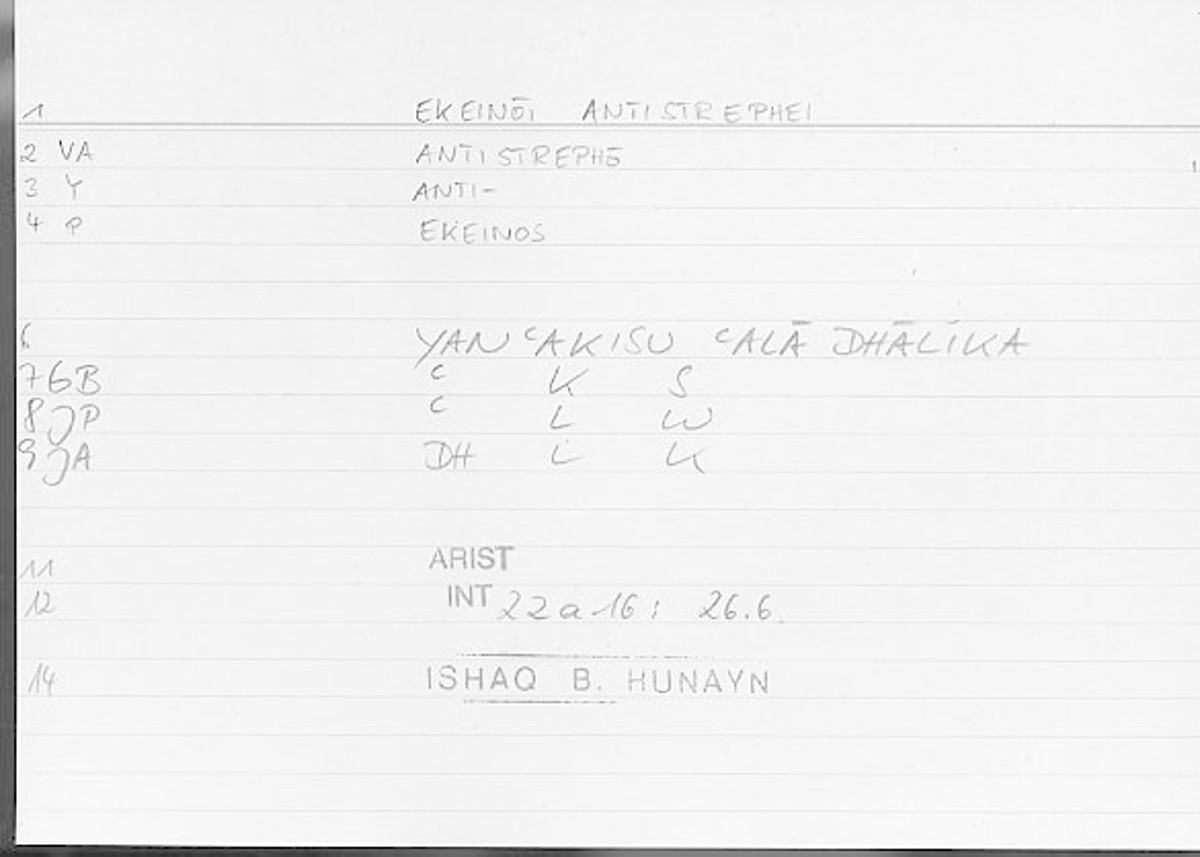 1 EKEINŌI ANTISTREPHEI
2 VA ANTISTREPHŌ
3 Y ANTI-
4 P EKEINOS
6 YANʿAKISU ʿALĀ DHĀLIKA
7 GB ʿ K S
8 JP ʿ L W
9 JA DH L K
11 ARIST
12 INT 22a16; 26.6
14 ISHAQ B. HUNAYN